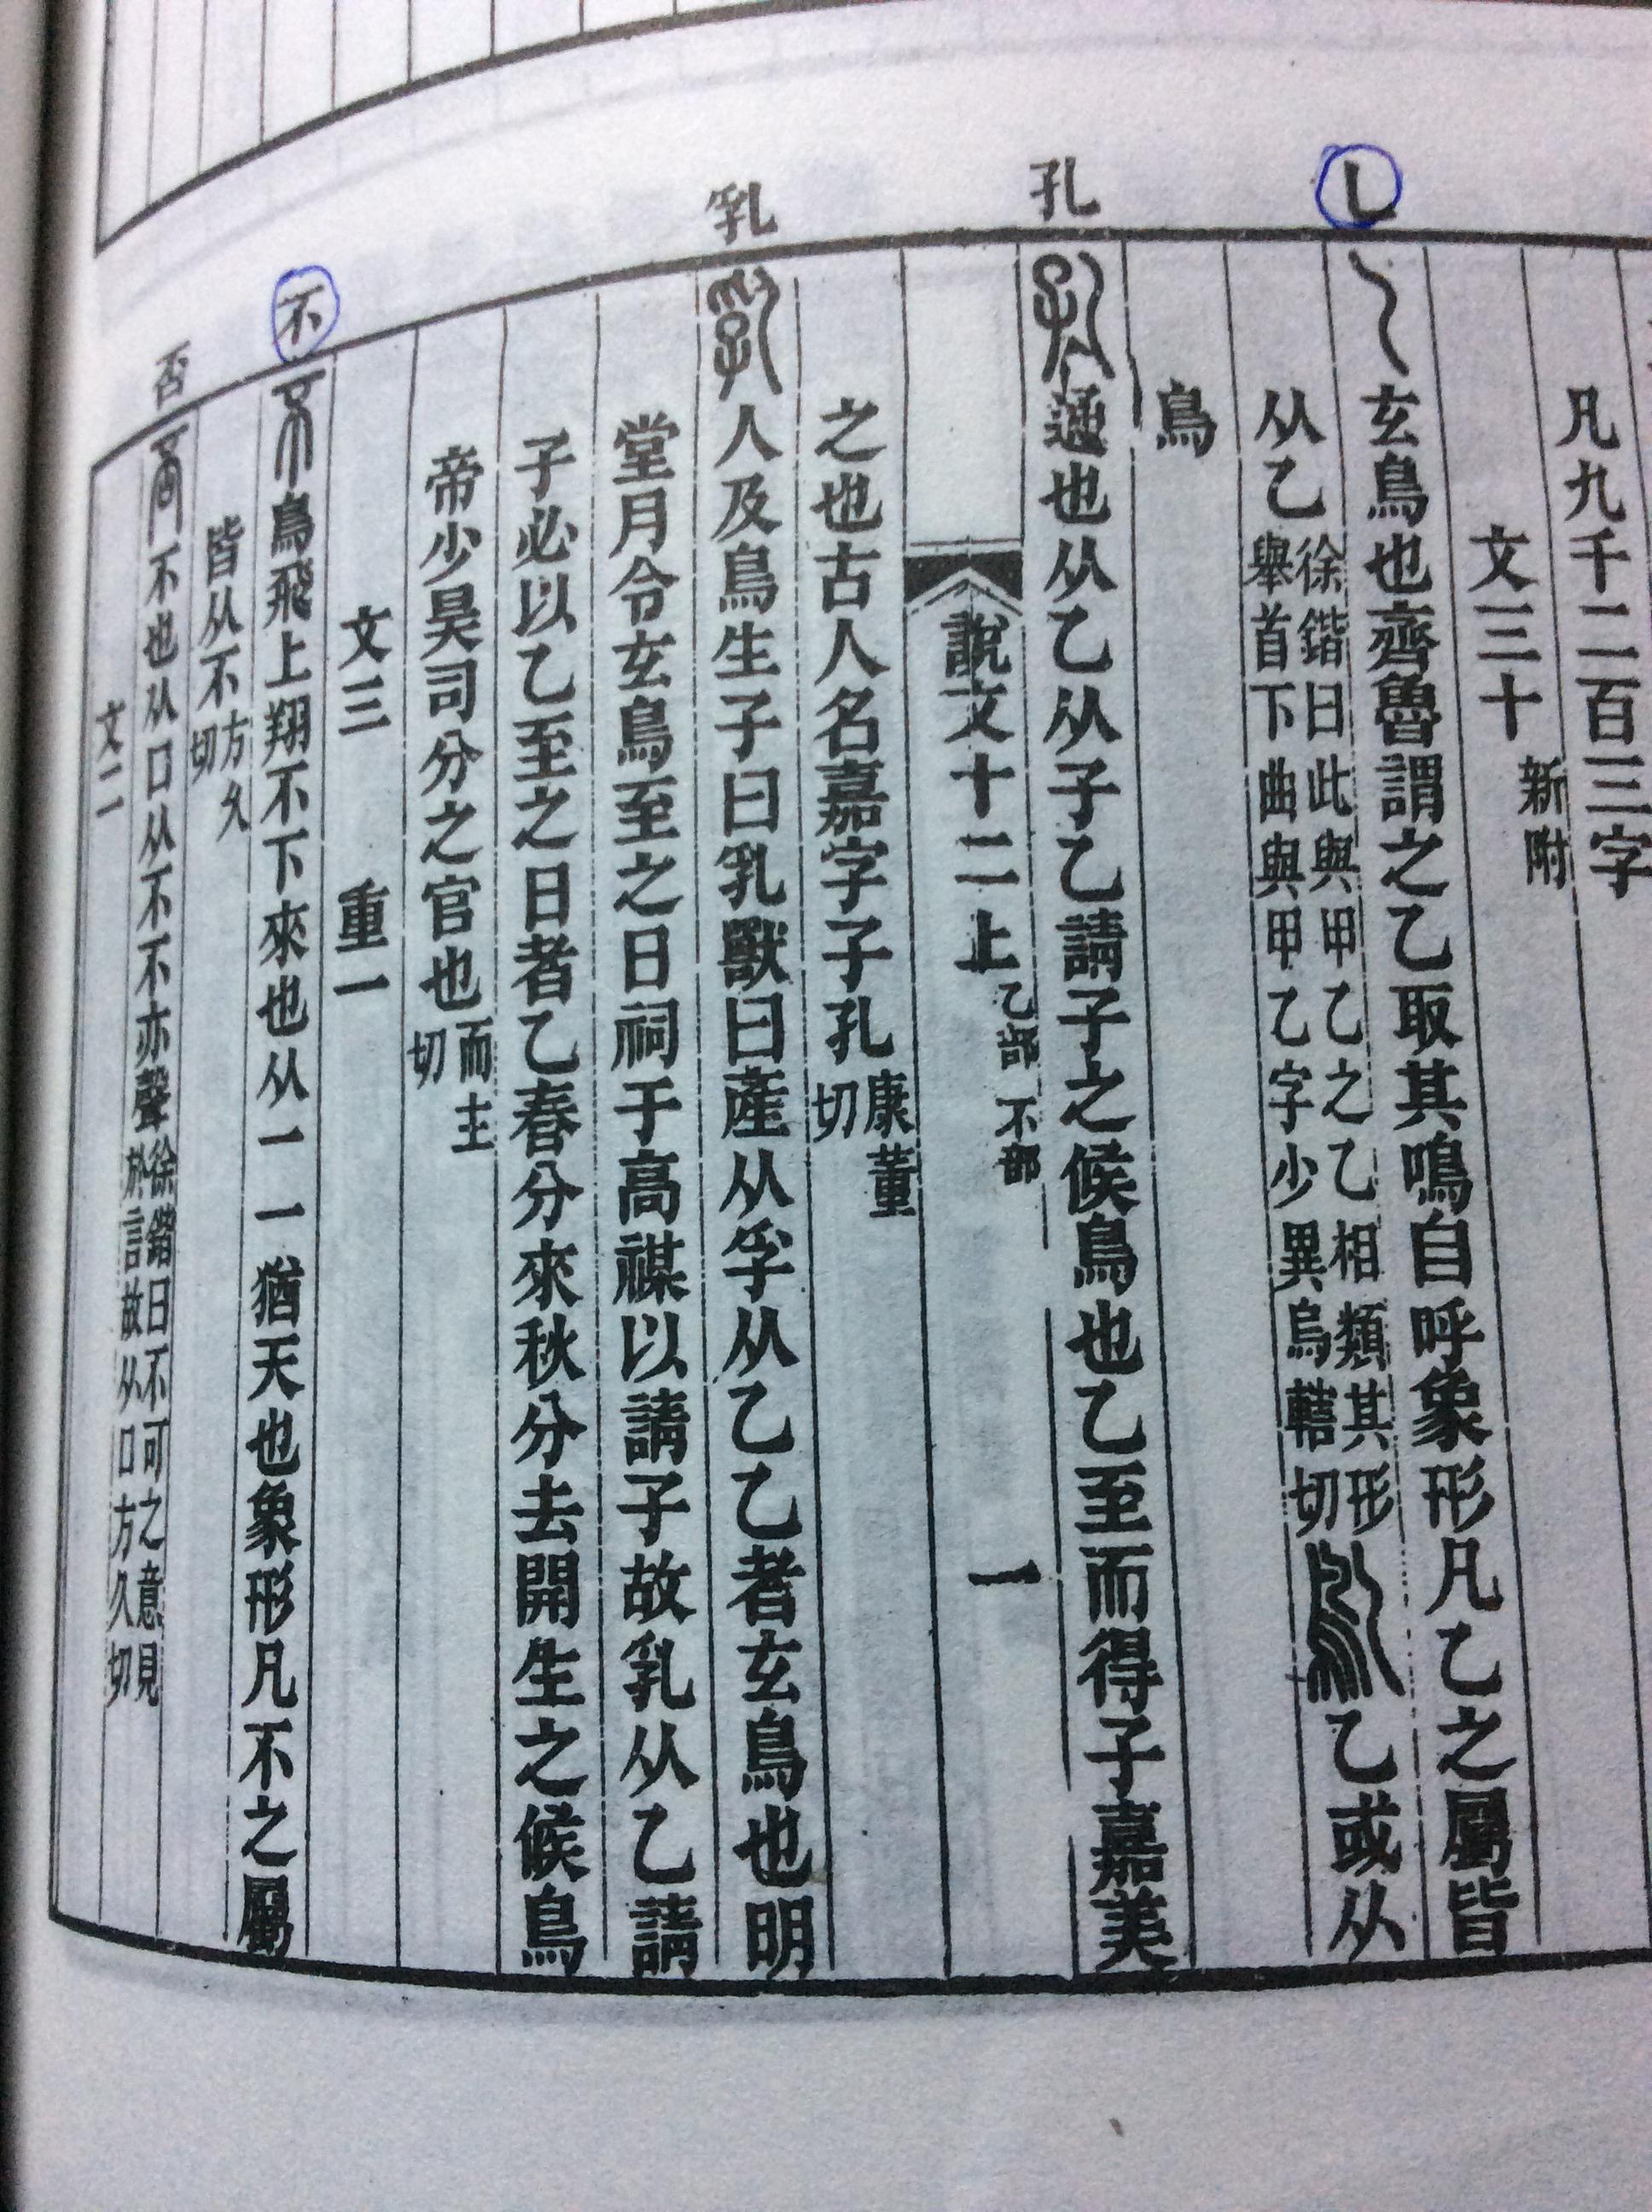 凡九千二百三字
文三十新附
乚
玄鳥也齊魯謂之乙取其鳴自呼象形凡乙之屬皆
从乙徐鍇曰此與甲乙之乙相類其形舉首下曲與甲乙字少異烏轄切
乙或从
鳥
孔
通也从乙从子乙請子之候鳥也乙至而得子嘉美
說文十二上 乙部 不部 一
之也古人名嘉字子孔康董切
乳
人及鳥生子曰乳獸曰產从孚从乙乙者玄鳥也明
堂月令玄鳥至之日祠于高禖以請子故乳从乙請
子必以乙至之日者乙春分來秋分去開生之候鳥
帝少昊司分之官也而主切
文三 重一
不
鳥飛上翔不下來也从一一猶天也象形凡不之屬
皆从不方久切
否
不也从口从不不亦聲徐鍇曰不可之意見於言故从口方久切
文二